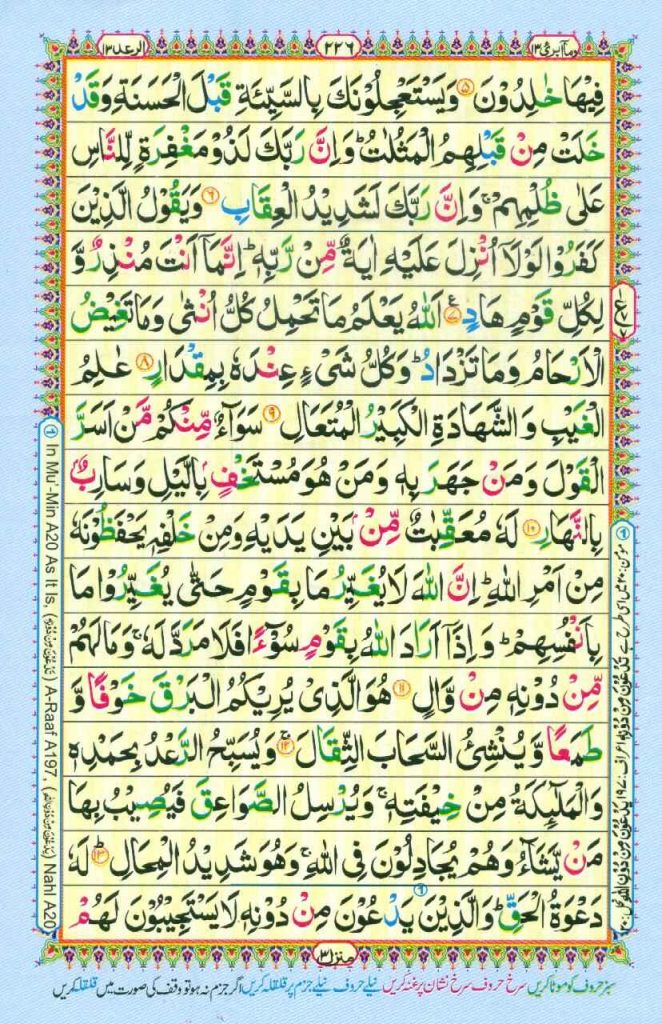 وماۤ ابرئ ١٣
٢٢٦
الرعد ١٣
فِيْهَا خٰلِدُوْنَ ۝۵ وَيَسْتَعْجِلُوْنَكَ بِالسَّيِّئَةِ قَبْلَ الْحَسَنَةِ وَقَدْ
خَلَتْ مِنْ قَبْلِهِمُ الْمَثُلٰتُ ؕ وَاِنَّ رَبَّكَ لَذُوْ مَغْفِرَةٍ لِّلنَّاسِ
عَلٰى ظُلْمِهِمْ ۚ وَاِنَّ رَبَّكَ لَشَدِيْدُ الْعِقَابِ ۝۶ وَيَقُوْلُ الَّذِيْنَ
كَفَرُوْا لَوْلَاۤ اُنْزِلَ عَلَيْهِ اٰيَةٌ مِّنْ رَّبِّهٖ ؕ اِنَّمَاۤ اَنْتَ مُنْذِرٌ وَّ
لِكُلِّ قَوْمٍ هَادٍ ۝۷ اَللّٰهُ يَعْلَمُ مَا تَحْمِلُ كُلُّ اُنْثٰى وَمَا تَغِيْضُ
الْاَرْحَامُ وَمَا تَزْدَادُ ؕ وَكُلُّ شَىْءٍ عِنْدَهٗ بِمِقْدَارٍ ۝۸ عٰلِمُ
الْغَيْبِ وَالشَّهَادَةِ الْكَبِيْرُ الْمُتَعَالِ ۝۹ سَوَآءٌ مِّنْكُمْ مَّنْ اَسَرَّ
الْقَوْلَ وَمَنْ جَهَرَ بِهٖ وَمَنْ هُوَ مُسْتَخْفٍۭ بِالَّيْلِ وَسَارِبٌۢ
بِالنَّهَارِ ۝۱۰ لَهٗ مُعَقِّبٰتٌ مِّنْۢ بَيْنِ يَدَيْهِ وَمِنْ خَلْفِهٖ يَحْفَظُوْنَهٗ
مِنْ اَمْرِ اللّٰهِ ؕ اِنَّ اللّٰهَ لَا يُغَيِّرُ مَا بِقَوْمٍ حَتّٰى يُغَيِّرُوْا مَا
بِاَنْفُسِهِمْ ؕ وَاِذَاۤ اَرَادَ اللّٰهُ بِقَوْمٍ سُوْٓءًا فَلَا مَرَدَّ لَهٗ ۚ وَمَا لَهُمْ
مِّنْ دُوْنِهٖ مِنْ وَّالٍ ۝۱۱ هُوَ الَّذِىْ يُرِيْكُمُ الْبَرْقَ خَوْفًا وَّ
طَمَعًا وَّيُنْشِئُ السَّحَابَ الثِّقَالَ ۝۱۲ وَيُسَبِّحُ الرَّعْدُ بِحَمْدِهٖ
وَالْمَلٰٓئِكَةُ مِنْ خِيْفَتِهٖ ۚ وَيُرْسِلُ الصَّوَاعِقَ فَيُصِيْبُ بِهَا
مَنْ يَّشَآءُ وَهُمْ يُجَادِلُوْنَ فِى اللّٰهِ ۚ وَهُوَ شَدِيْدُ الْمِحَالِ ۝۱۳ لَهٗ
دَعْوَةُ الْحَقِّ ؕ وَالَّذِيْنَ يَدْعُوْنَ مِنْ دُوْنِهٖ لَا يَسْتَجِيْبُوْنَ لَهُمْ
منزل ٣
سبز حروف کو موٹا کریں سرخ حروف سرخ نشان پر غنہ کریں نیلے حروف نیلے جزم پر قلقلہ کریں اگر جزم نہ ہو تو وقف کی صورت میں قلقلہ کریں
In Mu'-Min A20 As It Is, (يَدْعُوْنَ مِنْ دُوْنِهٖ) A-Raaf A197, (يَدْعُوْنَ مِنْ دُوْنِ اللّٰهِ) Nahl A20